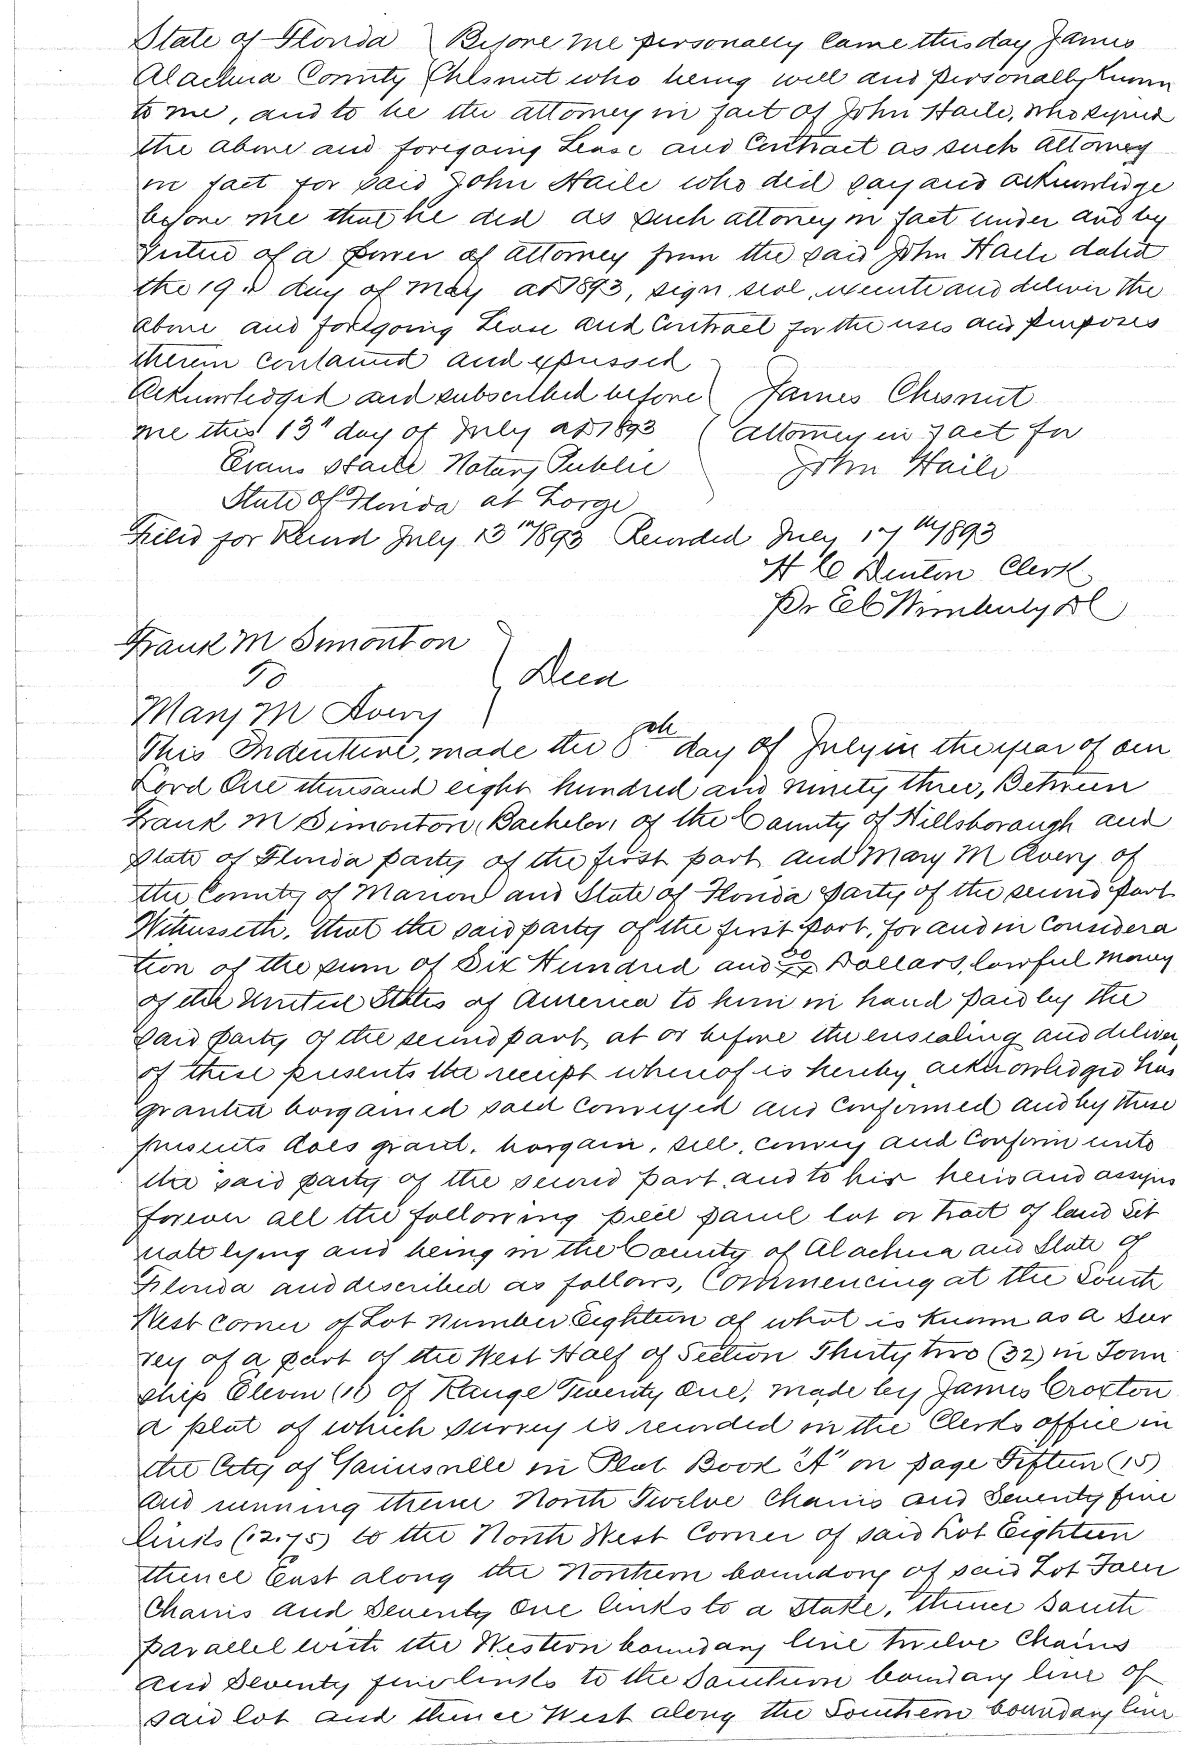 State of Florida } Before me personally came this day James
Alachua County } Chesnut who being well and personally known
to me, and to be the attorney in fact of John Haile, who signed
the above and foregoing Lease and Contract as such attorney
in fact for said John Haile who did say and acknowledge
before me that he did as such attorney in fact under and by
virtue of a power of attorney from the said John Haile dated
the 19th day of May AD 1893, sign, seal, execute and deliver the
above and foregoing Lease and Contract for the uses and purposes
therein contained and expressed
Acknowledged and subscribed before } James Chesnut
me this 13" day of July AD 1893 } attorney in fact for
Evans Haile Notary Public } John Haile
State of Florida at Large
Filed for Record July 13th/1893 Recorded July 17th/1893
H C Denton Clerk
Pr E C Wimberly DC
Frank M Simonton
To } Deed
Mary M Avery
This Indenture, made the 8th day of July in the year of our
Lord One thousand eight hundred and ninety three, Between
Frank M Simonton, Bachelor, of the County of Hillsborough and
State of Florida party of the first part and Mary M Avery of
the County of Marion and State of Florida party of the second part
Witnesseth, that the said party of the first part, for and in considera
tion of the sum of Six Hundred and 00/xx Dollars, lawful money
of the United States of America to him in hand paid by the
said party of the second part, at or before the ensealing and delivery
of these presents the receipt whereof is hereby acknowledged has
granted bargained sold conveyed and confirmed and by these
presents does grant, bargain, sell, convey and confirm unto
the said party of the second part and to his heirs and assigns
forever all the following piece parcel lot or tract of land Sit
uate lying and being in the County of Alachua and State of
Florida and described as follows, Commencing at the South
West corner of Lot number Eighteen of what is known as a Sur
vey of a part of the West Half of Section Thirty two (32) in Town
ship Eleven (11) of Range Twenty One, made by James Croxton
a plat of which survey is recorded in the Clerks office in
the City of Gainesville in Plat Book "A" on page Fifteen (15)
and running thence North Twelve Chains and Seventy five
links (12.75) to the North West Corner of said Lot Eighteen
thence East along the Northern boundary of said Lot Four
Chains and Seventy One links to a Stake, thence South
parallel with the Western boundary line twelve Chains
and Seventy five links to the Southern boundary line of
said lot and thence West along the Southern boundary line